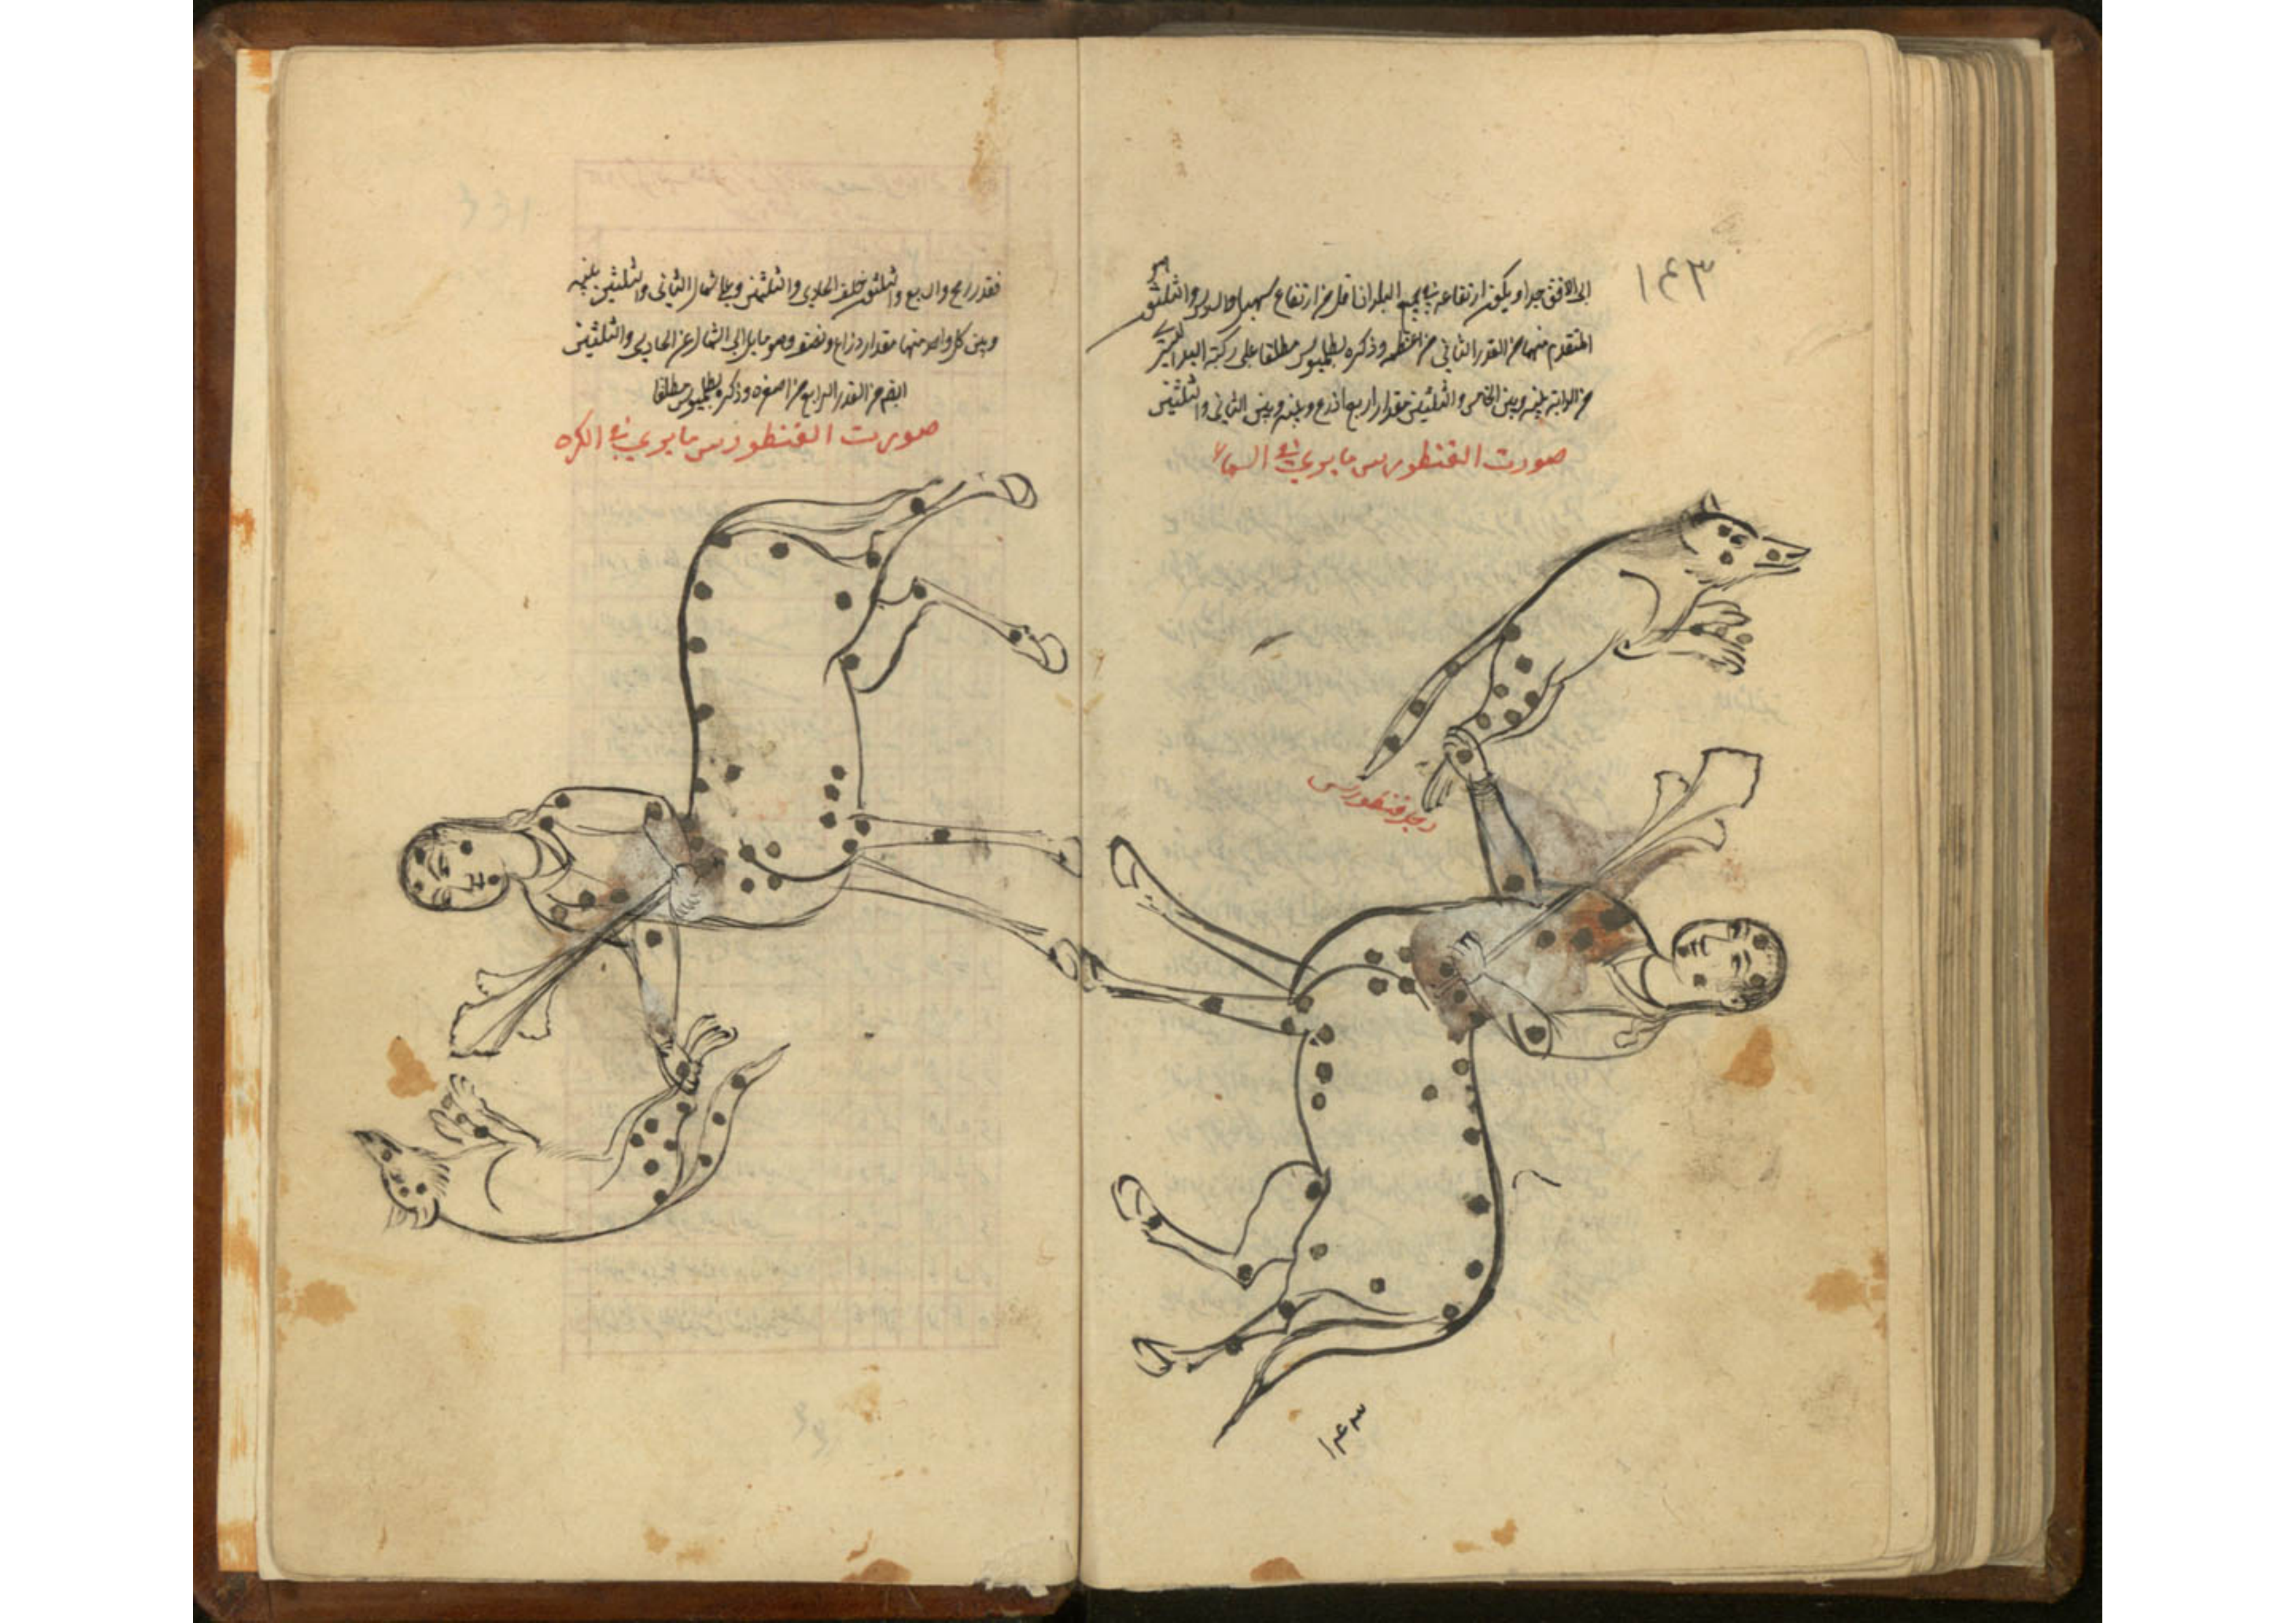 ١٤٣
الى الافق جدا ويكون ارتفاعه في جميع البلدان اقل من ارتفاع سهيل والـ والثلثون
المتقدم منهما من القدر الثاني من اعظمه وذكره بطلميوس مطلقا على ركبة اليد
من الدابة بينه وبين الخامس والثلثين مقدار اربع اذرع وبينه وبين الثاني والثلثين
صورت القنطورس ما يرى في السماء
رجل قنطورس
١٤٣
فقدر رمح والرابع والثلثون خلف الحادى والثلثين وعلى شمال الثانى والثلثين بينه
وبين كل واحد منهما مقدار ذراع ونصف وهو مايل الى الشمال عن الحادى والثلثين
من القدر الرابع من اصغره وذكره بطلميوس مطلقا
صورت القنطورس ما يرى في الكره